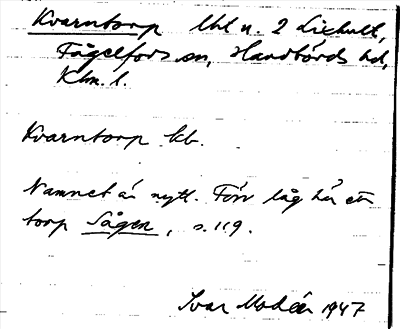 Kvarntorp lht u. 2 Lixhult,
Fågelfors sn, Handbörds hd,
Klm. l.
Kvarntorp kb.
Namnet är nytt. Förr låg här ett
torp Sågen, s. 119.
Ivar Modéer 1947